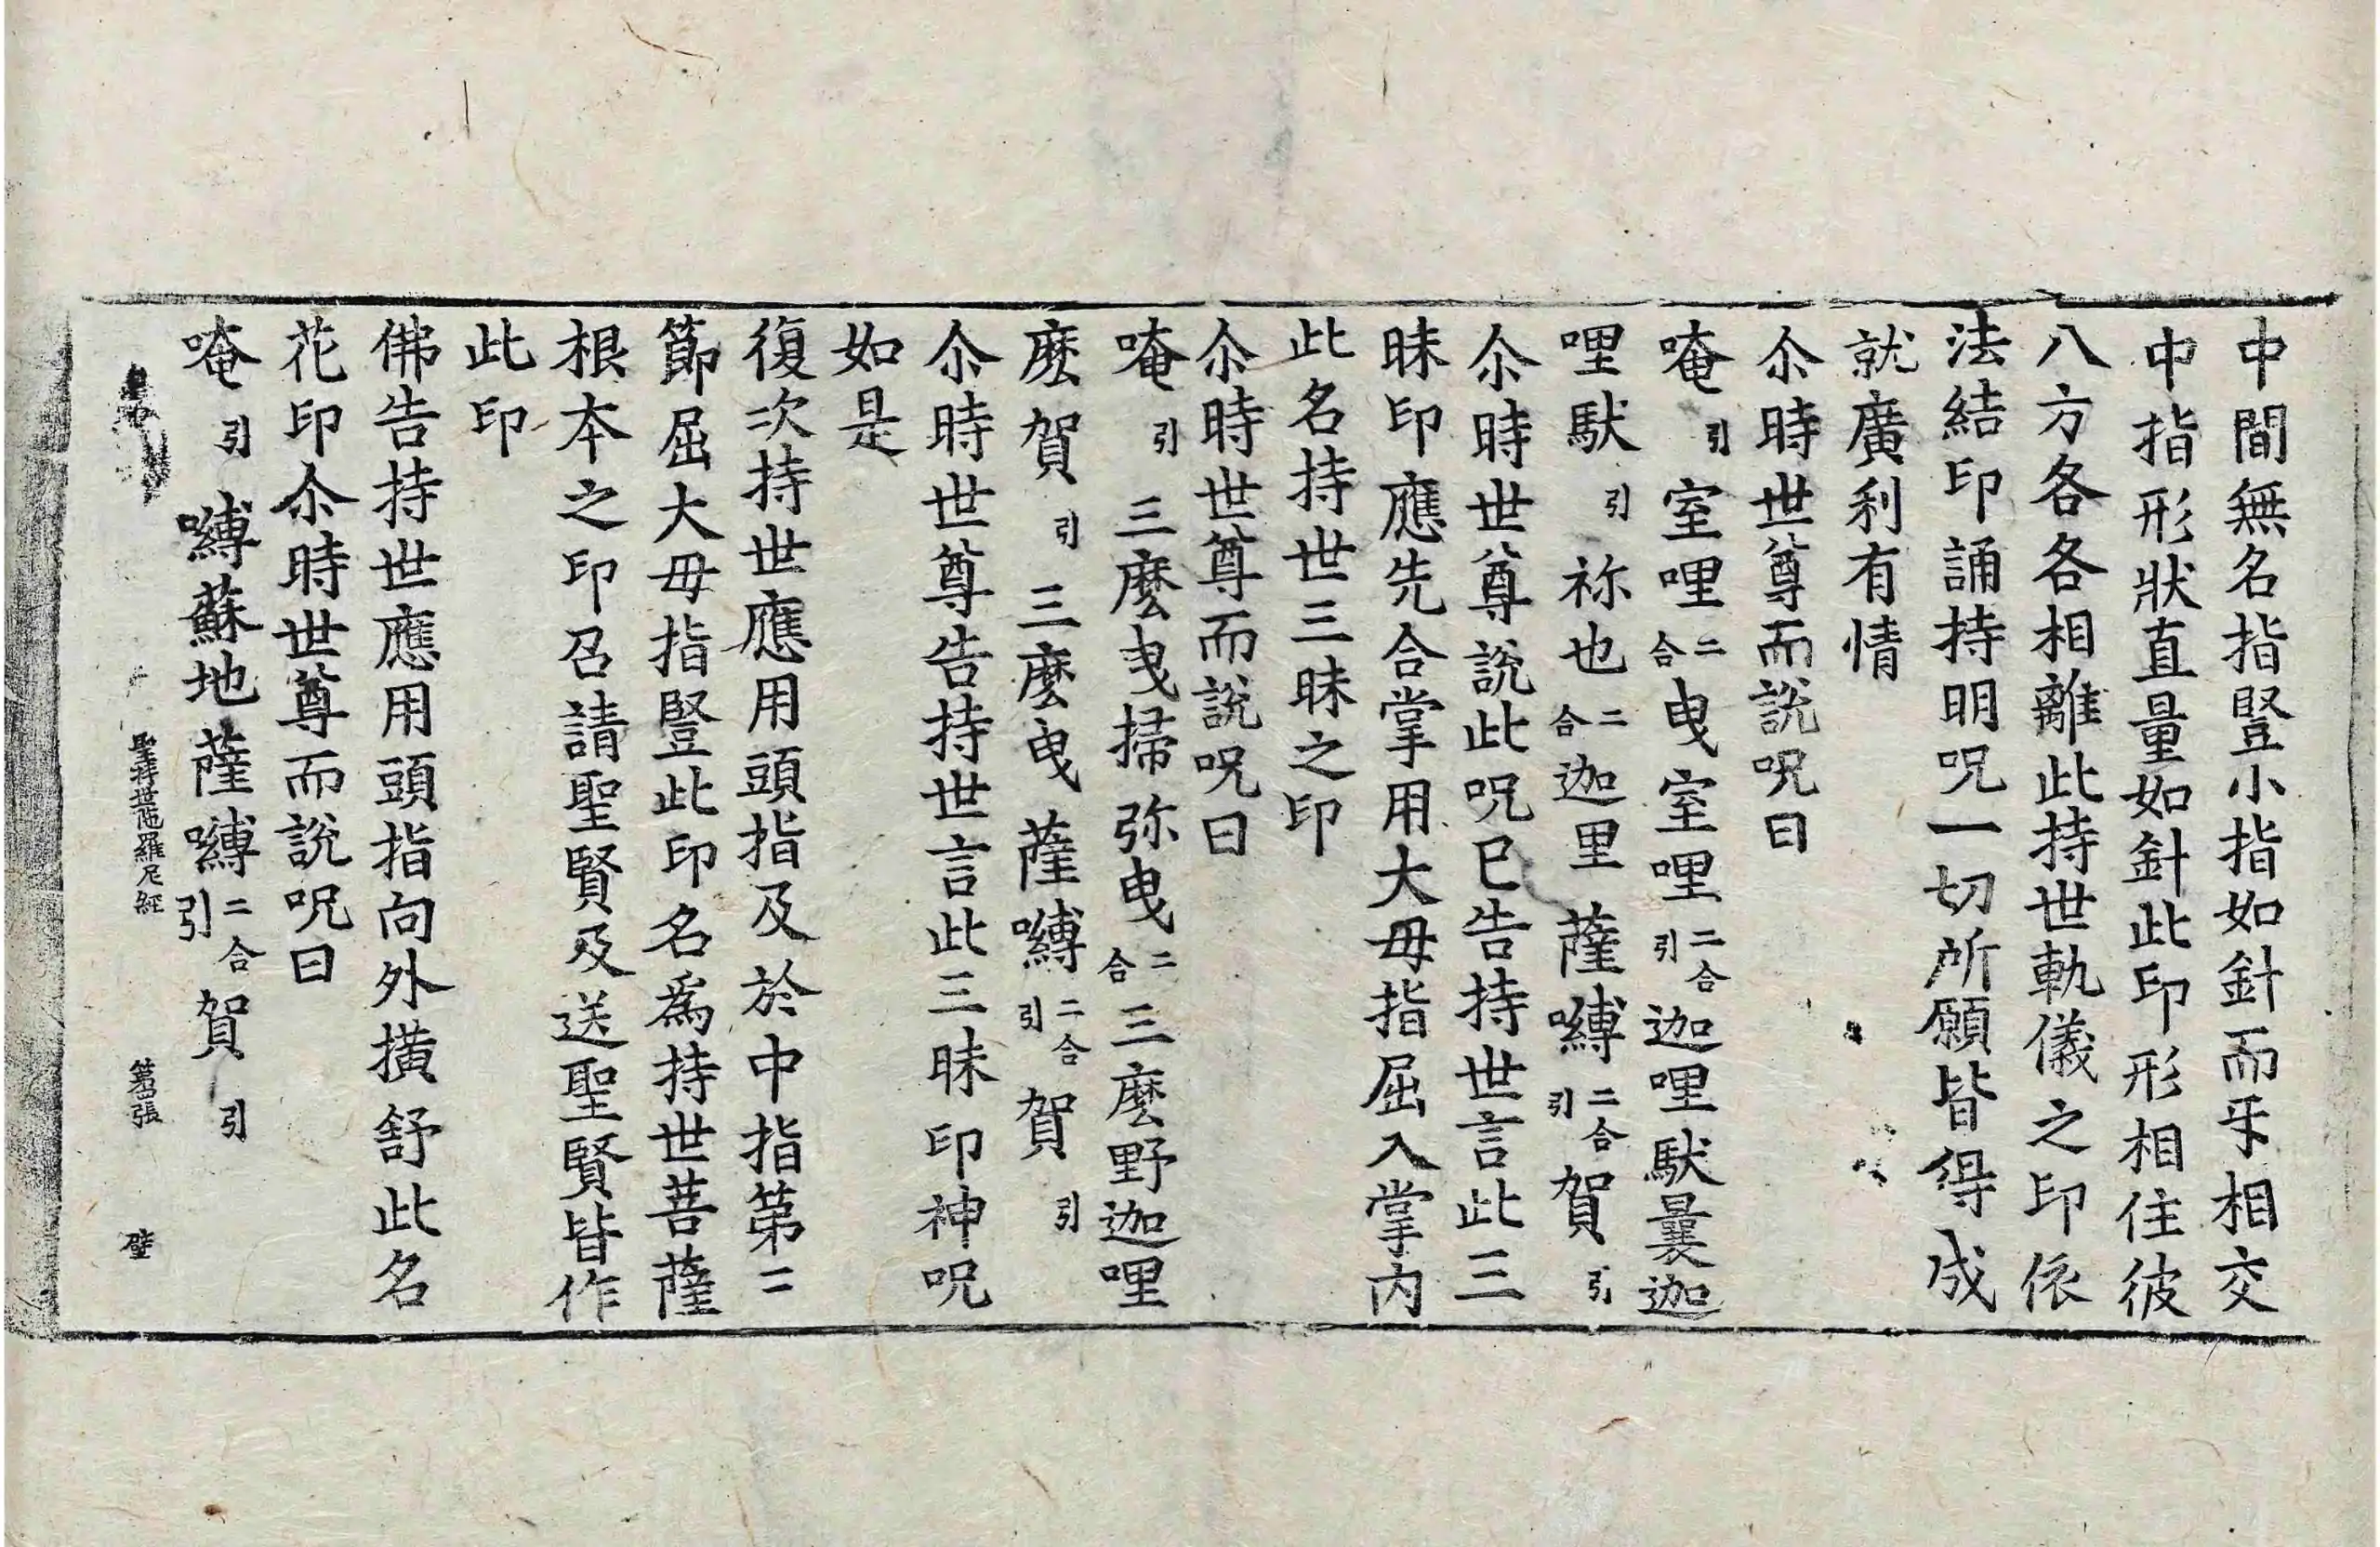 中間無名指豎小指如針而㸦相交
中指形狀直量如針此印形相住彼
八方各各相離此持世軌儀之印依
法結印誦持明呪一切所願皆得成
就廣利有情
尒時世尊而說呪曰
唵引室哩二合曳室哩二合引迦哩馱曩迦
哩馱引祢也二合迦里薩嚩二合引賀引
尒時世尊說此呪已告持世言此三
昧印應先合掌用大母指屈入掌內
此名持世三昧之印
尒時世尊而說呪曰
唵引三麼曳掃弥曳二合三麼野迦哩
麼賀引三麼曳薩嚩二合引賀引
尒時世尊告持世言此三昧印神呪
如是
復次持世應用頭指及於中指第二
節屈大母指豎此印名爲持世菩薩
根本之印召請聖賢及送聖賢皆作
此印
佛告持世應用頭指向外撗舒此名
花印尒時世尊而說呪曰
唵引嚩蘇地薩嚩二合引賀引
聖持世陁羅尼經 第 張 壁